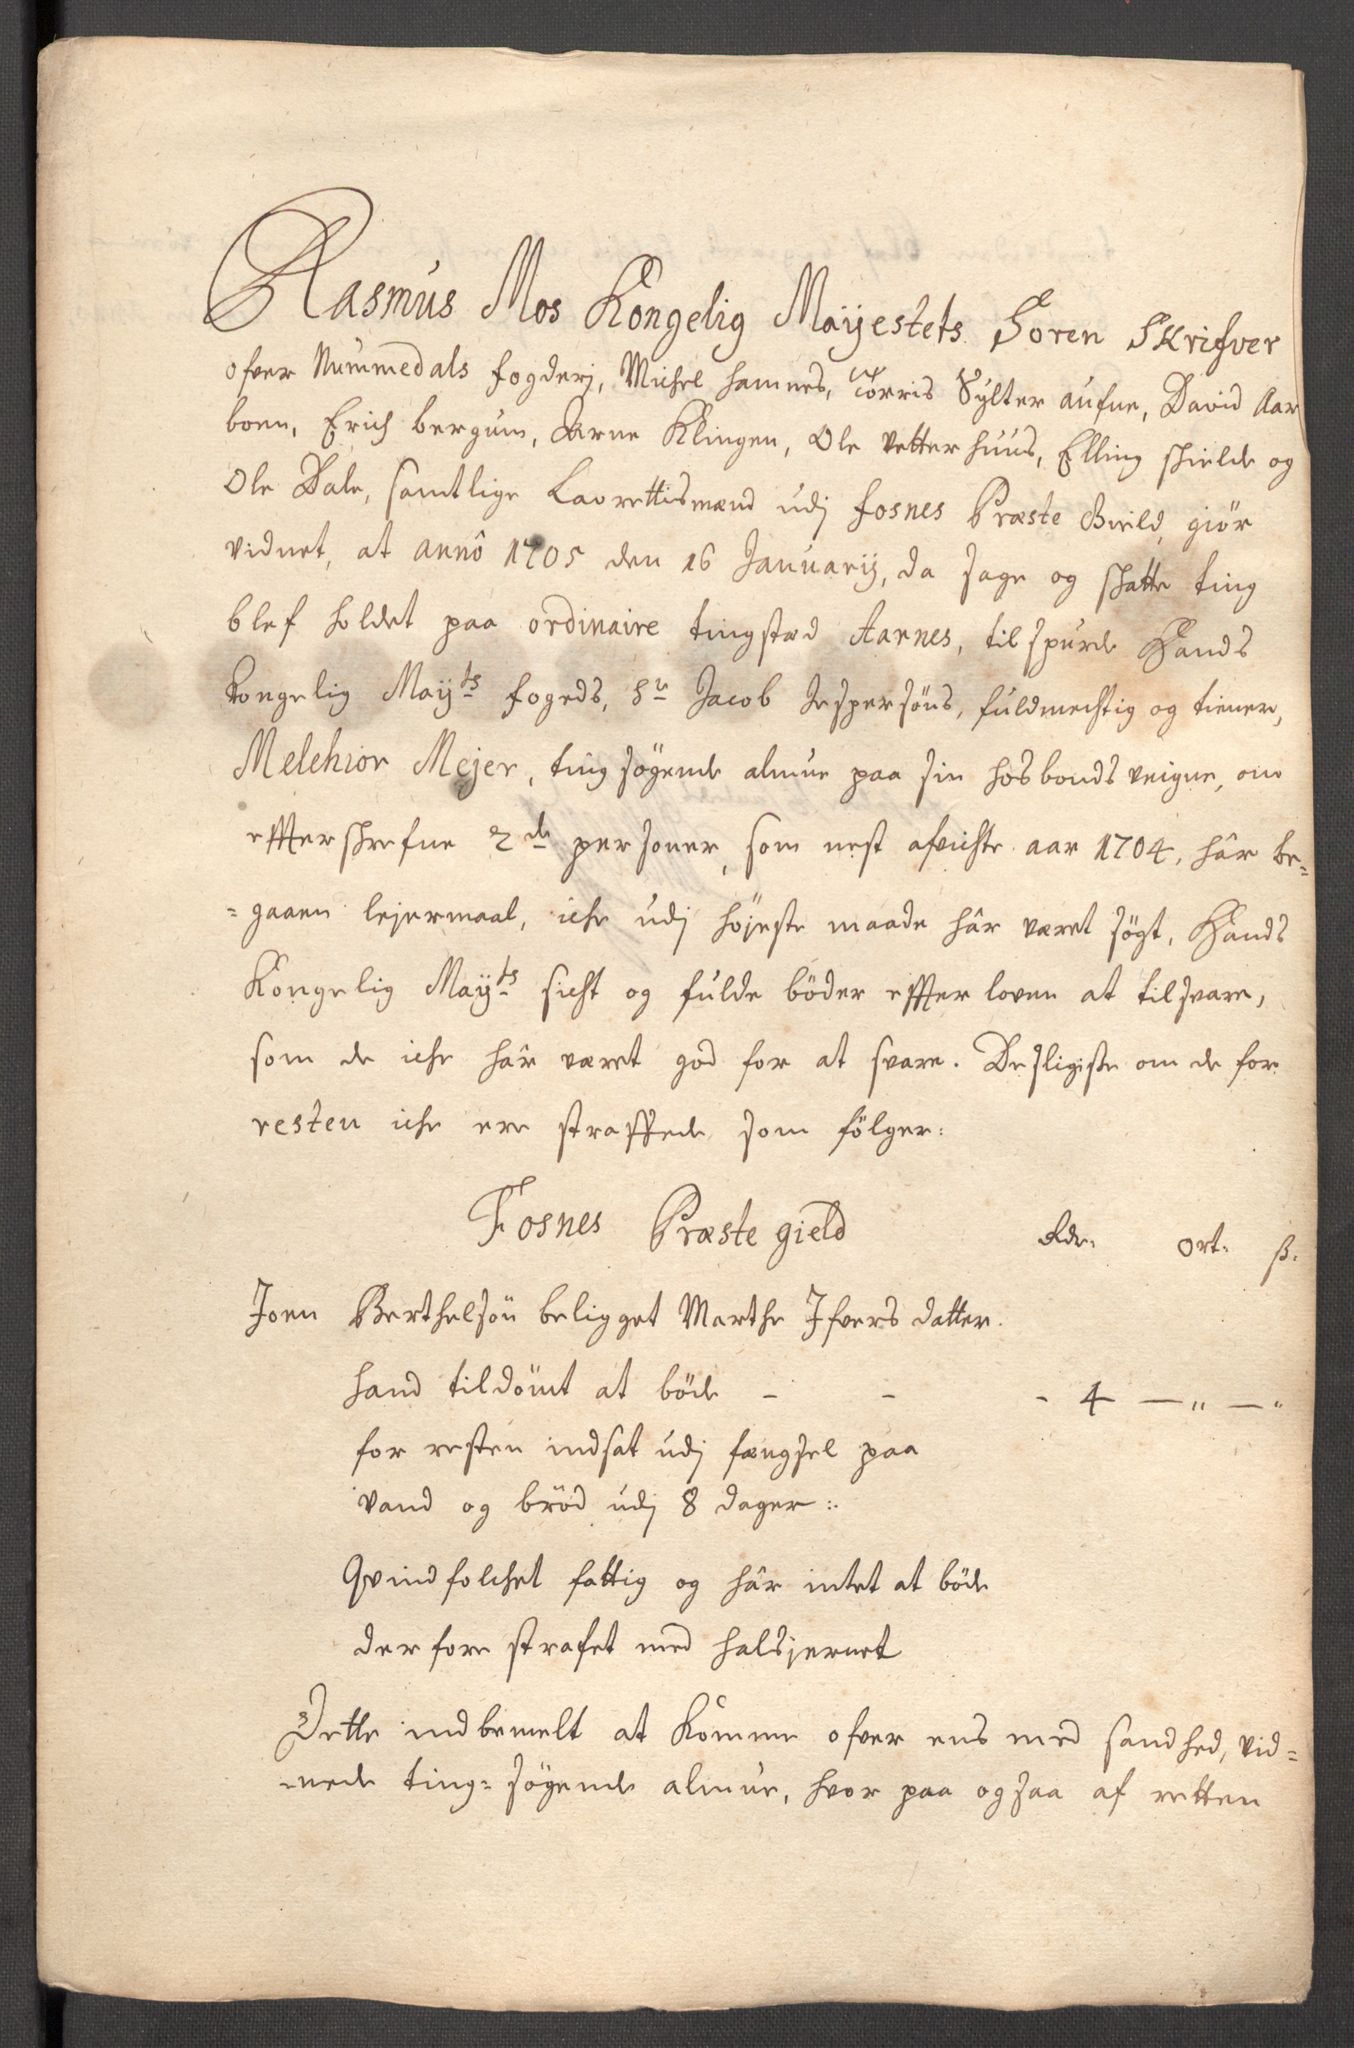 Rasmus Mos Kongelig Mayjestets Soren Skrifver
ofver Nummedals fogderj, Michel hamnes, Torris Sylter aufne, David Aar
boen, Erich bergum, Arne Klingen, Ole vetterhuus, Elling skielde og
Ole Dale, samtlige Laurettismænd udj fosnes Præste Gield, giör
vidnet, at anno 1705 den 16 Januarij, da sage og skatte ting
blef holdet paa ordinaire tingstæd Aarnes, tilspurde Hands
Kongelig Mayts fogeds, Sr Jacob Jespersöns, fuldmechtig og tiener,
Melchior Mejer, ting søgende almue paa sin hosbonds veigne, om
effterskrefne 2de personer, som nest afvichte aar 1704, hår be=
=gaaen lejermaal, iche udj höjeste maade hår været søgt, Hands
Kongelig Mayts sicht og fulde böder effter loven at tilsvare,
som de iche hår været god for at svare. Desligeste om de for
resten iche ere straffede som fölger:
Fosnes Præste gield Rdr. ort. ß.
Joen Berthelsön beligget Marthe Ifvers datter.
hand tildömt at böde - - - 4 — " — "
for resten indsat udj fængsel paa
vand og bröd udj 8 dager:
Qvindfolchet fattig og hår intet at böde
derfore strafet med halsjernet
Dette indbemelt at komme ofver ens med sandhed, vid=
=nede ting= søgende almue, hvor paa ogsaa af retten